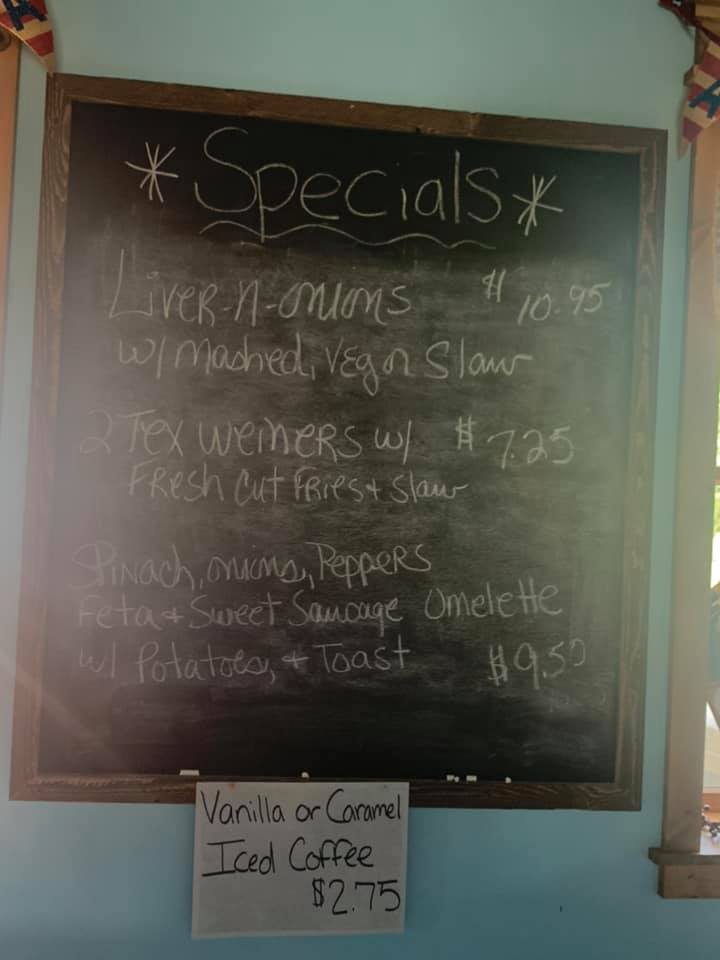 *Specials*
Liver-n-onions $10.95
w/ Mashed, Veg or Slaw
2 Tex Weiners w/ $7.25
Fresh Cut Fries + Slaw
Spinach, onions, Peppers
Feta + Sweet Sausage Omelette
w/ Potatoes, + Toast $9.50
Vanilla or Caramel
Iced Coffee
$2.75